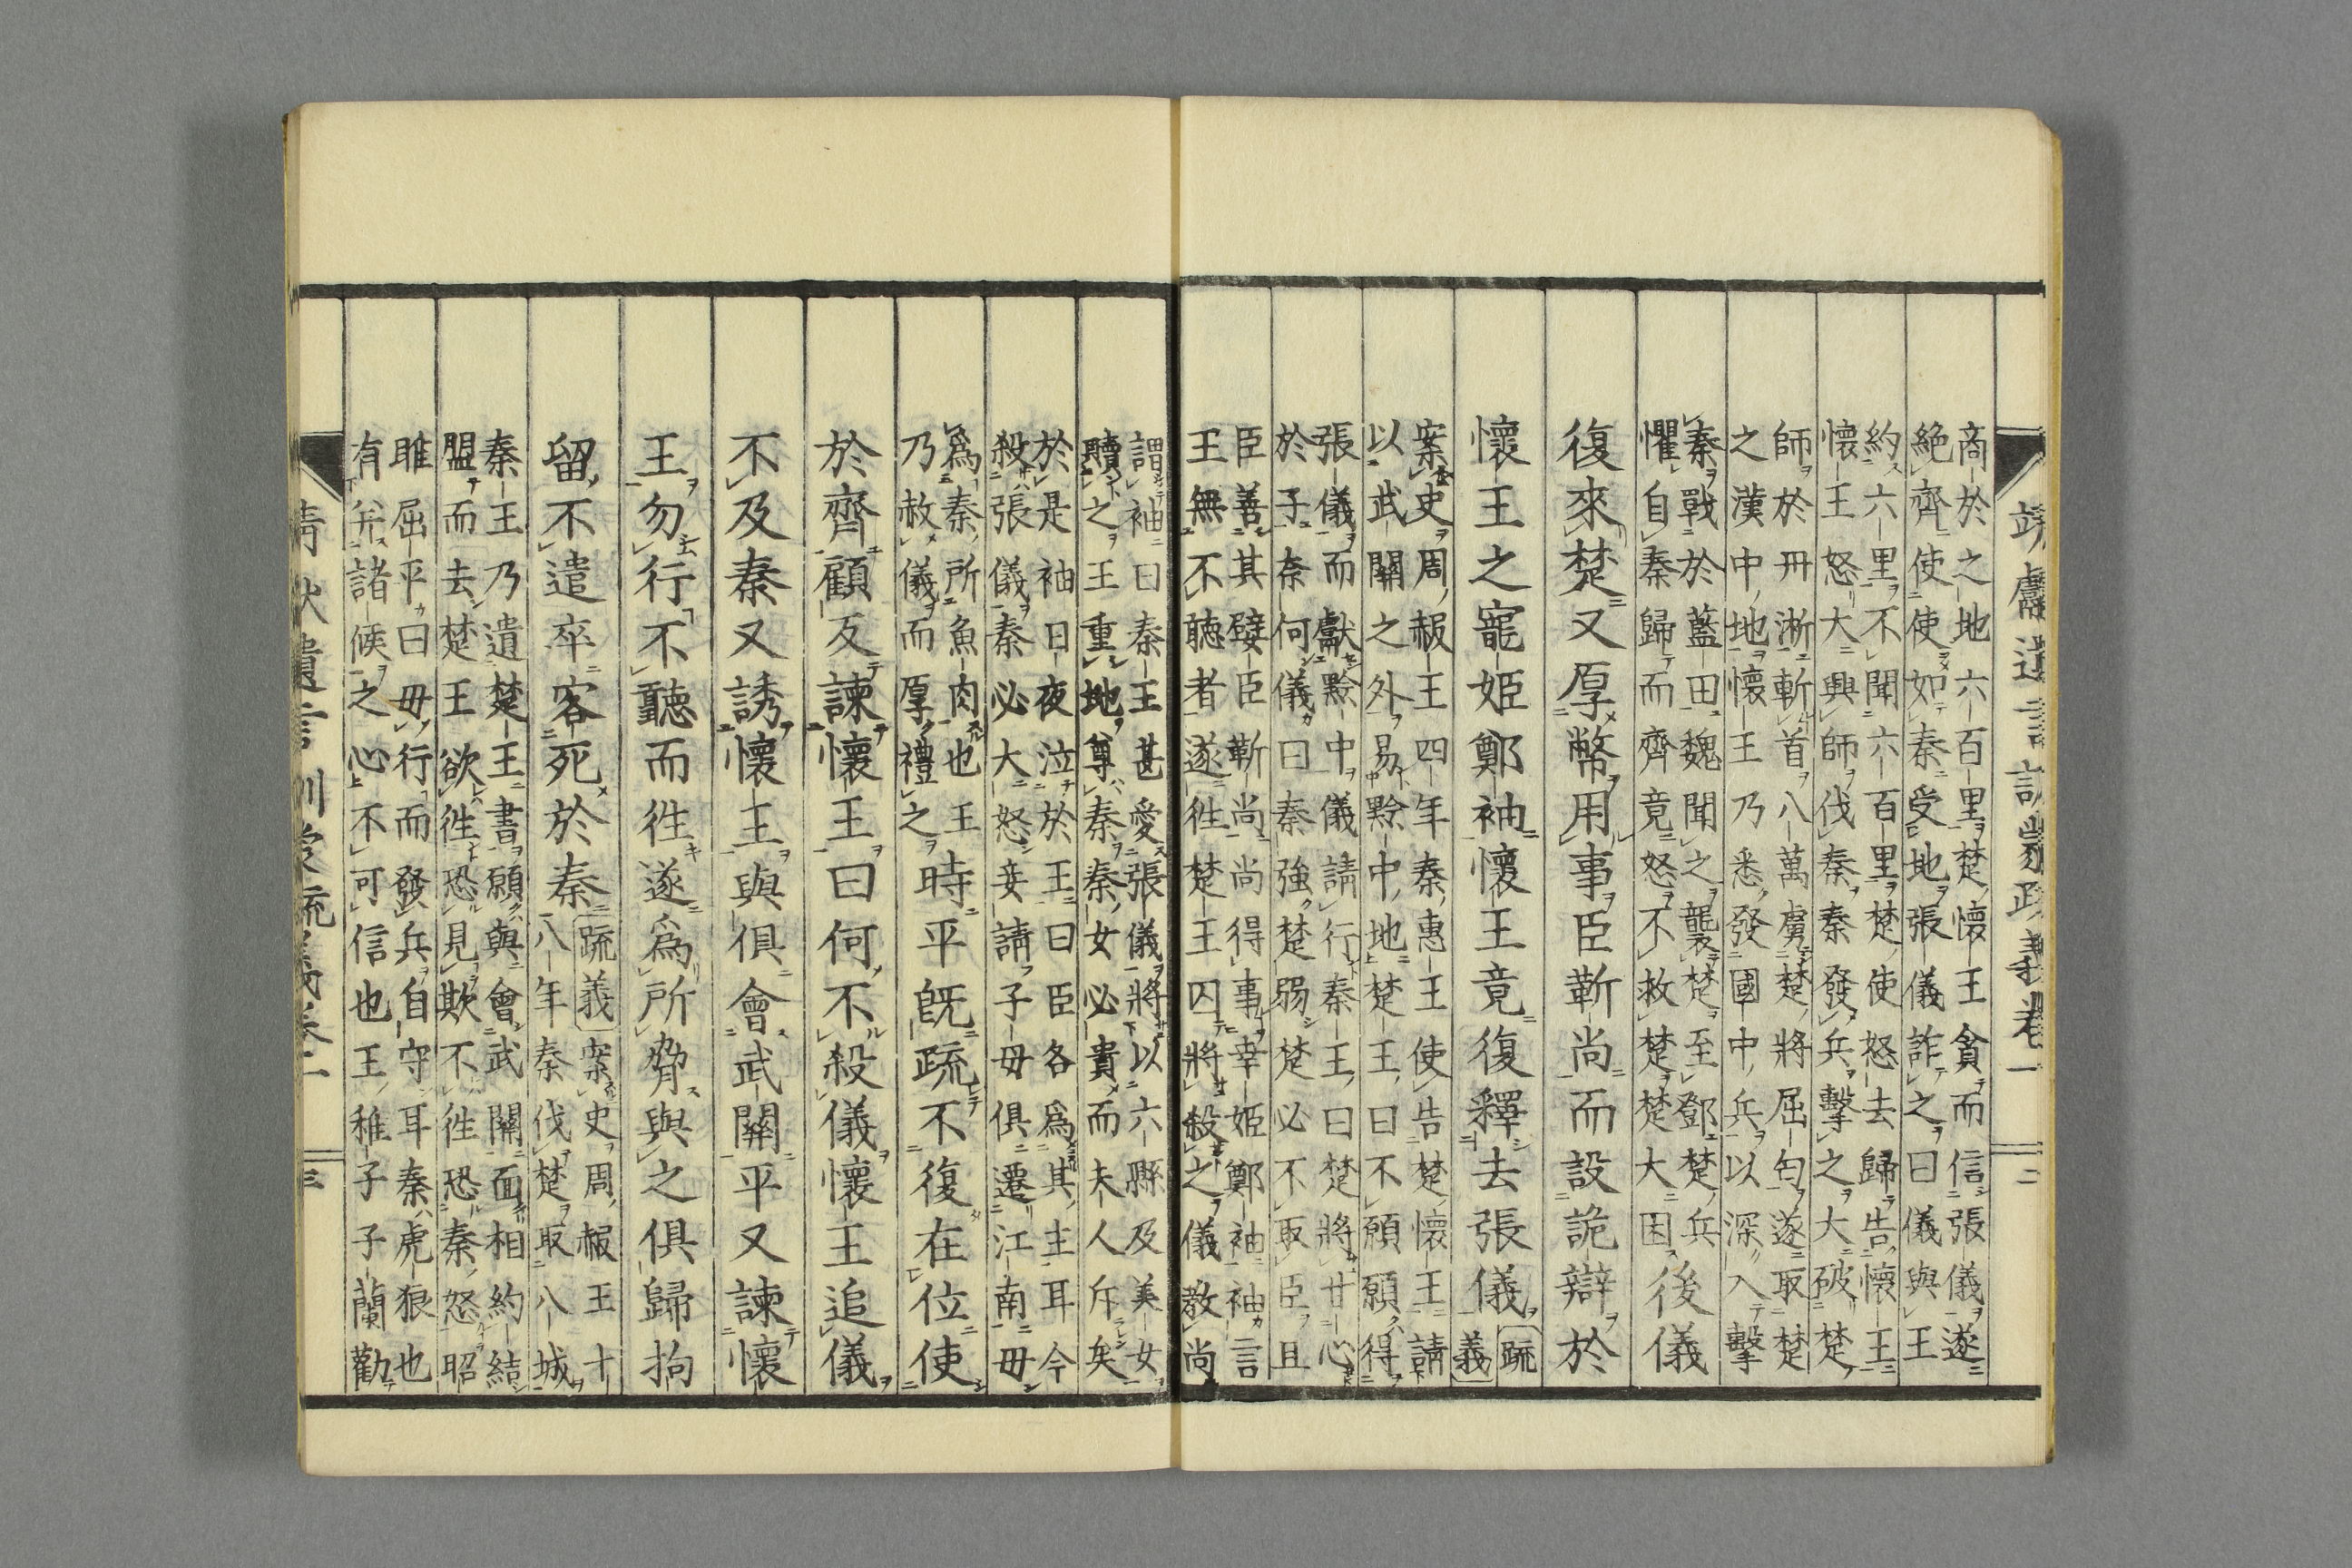 靖獻遺言訓蒙疏義卷一 二
商於之地六百里楚懷王貪而信張儀遂
絶齊使使如秦受地張儀詐之曰儀與王
約六里不聞六百里楚使怒去歸告懷王
懷王怒大興師伐秦秦發兵擊之大破楚
師於丹淅斬首八萬虜楚將屈匄遂取楚
之漢中地懷王乃悉發國中兵以深入擊
秦戰於藍田魏聞之襲楚至鄧楚兵
懼自秦歸而齊竟怒不救楚楚大困
後儀
復來楚又厚幣用事臣靳尚而設詭辯於
懷王之寵姬鄭袖懷王竟復釋去張儀 疏義
案史周赧王四年秦惠王使告楚懷王請
以武關之外易黔中地楚王曰不願願得
張儀而獻黔中儀請行秦王曰楚將甘心
於子奈何儀曰秦強楚弱楚必不取臣且
臣善其嬖臣靳尚尚得事幸姬鄭袖袖言
王無不聽者遂徃楚王囚將殺之儀教尚
謂袖曰秦王甚愛張儀將以六縣及美女
贖之王重地尊秦秦女必貴而夫人斥矣
於是袖日夜泣於王曰臣各爲其主耳今
殺張儀秦必大怒妾請子母俱遷江南毋
爲秦所魚肉也王
乃赦儀而厚禮之
時平既疏不復在位使
於齊顧反諫懷王曰何不殺儀懷王追儀
不及秦又誘懷王與俱會武關平又諫懷
王勿行不聽而徃遂爲所脅與之俱歸拘
留不遣卒客死於秦
疏義 案史周赧王十
八年秦伐楚取八城
秦王乃遺楚王書願與會武關面相約結
盟而去楚王欲徃恐見欺不徃恐秦怒昭
雎屈平曰毋行而發兵自守耳秦虎狼也
有并諸侯之心不可信也王稚子子蘭勸
三